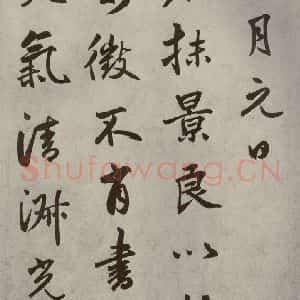 月元日
抹景良以
微不肖書
氣清淑光
Shufawang.CN